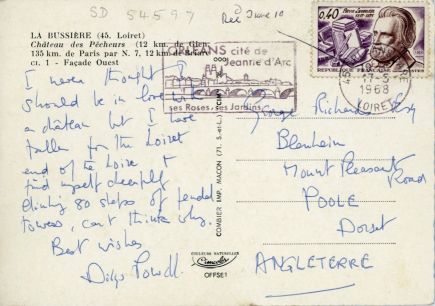 SD 54597
Recd June 10
LA BUSSIÈRE (45. Loiret)
Château des Pêcheurs (12 km. de Gien,
135 km. de Paris par N. 7, 12 km. de Briare
cr. 1 - Façade Ouest
ORLÉANS cité de
Jeanne d'Arc
ses Roses, ses Jardins
0,40
1968
LOIRET
I never thought I
should be in love with
a château but I have
fallen for the Loiret
end of the Loire &
find myself cheerfully
climbing 80 steps of feudal
towers, can't think why.
Best wishes
Dilys Powell.
COMBIER IMP. MACON (71. S.-et-L.)
COULEURS NATURELLES
OFFSET
George Richards Esq
Blenheim
Mount Pleasant
Road
POOLE
Dorset
ANGLETERRE